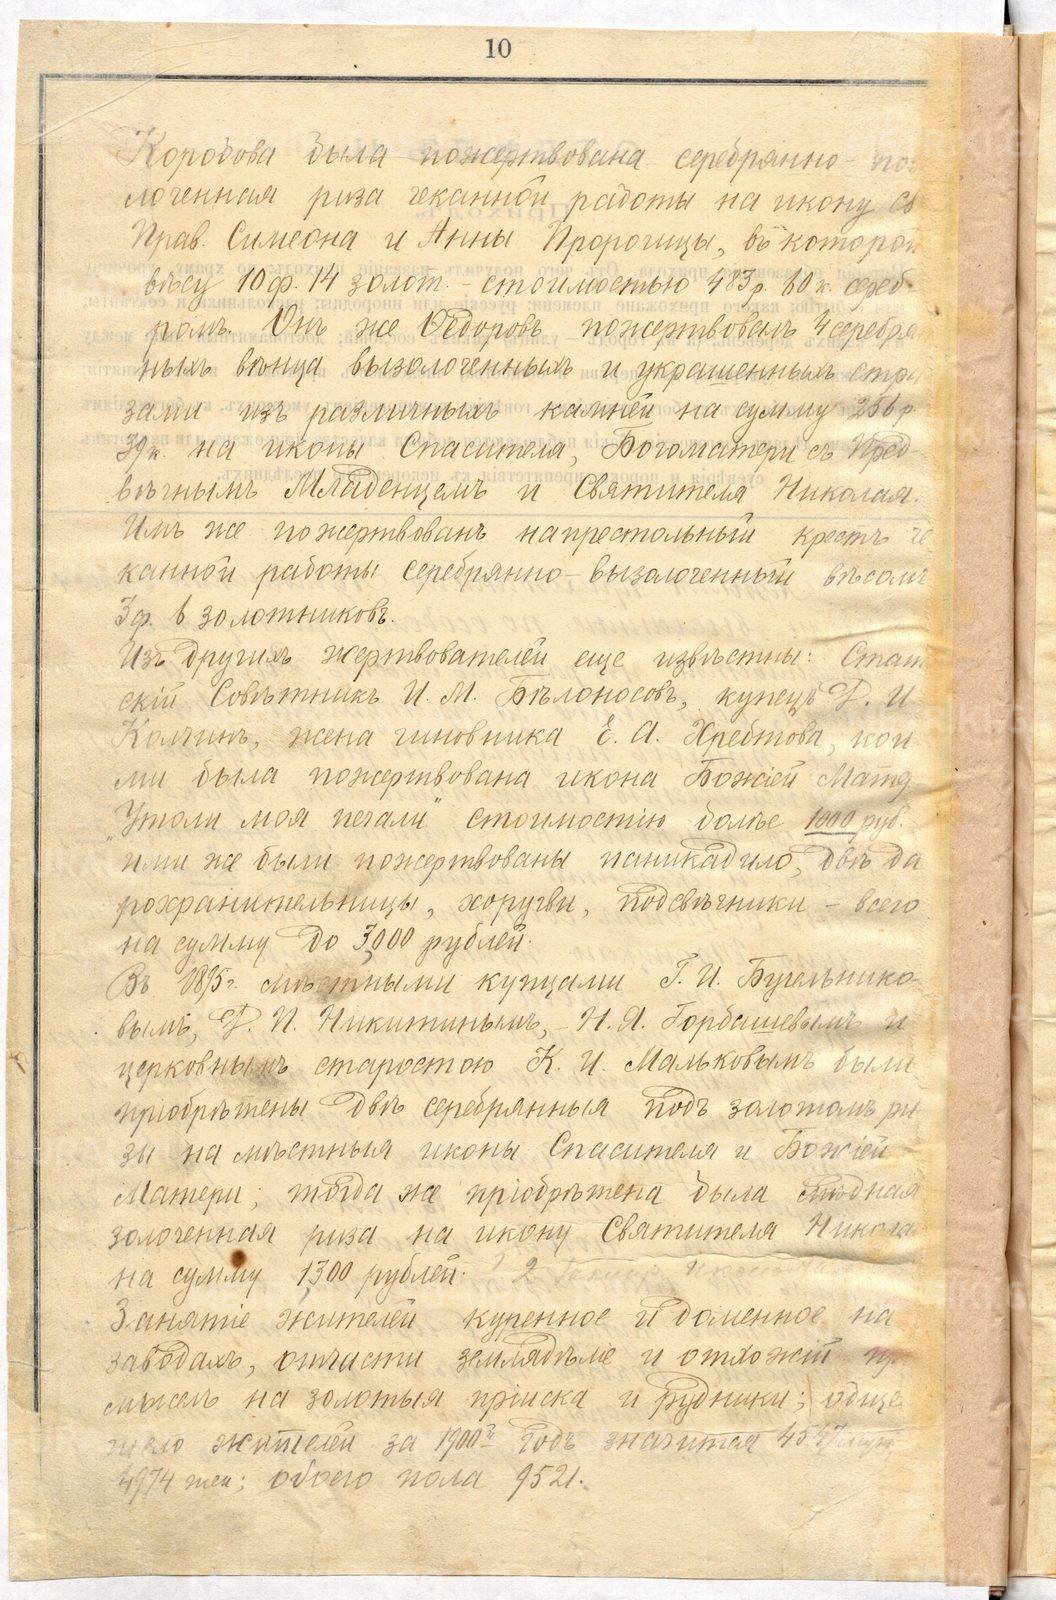 10
Коробова была пожертвована серебрянно-поз
лоченная риза чеканной работы на икону Св
Прав. Симеона и Анны Пророчицы, въ которой
вѣсу 10 ф. 14 золот. – стоимостью 483 р. 60 к. сереб-
ромъ. Онъ же Ѳедоровъ пожертвовалъ 4 серебрян
ныхъ вѣнца вызолоченныхъ и украшенныхъ стра
зами изъ различныхъ камней на сумму 256 р.
39 к. на иконы Спасителя, Богоматери съ Пред-
вѣчнымъ Младенцемъ и Святителя Николая.
Имъ же пожертвованъ напрестольный крестъ че
канной работы серебрянно-вызолоченный вѣсомъ
3 ф. 6 золотниковъ.
Изъ другихъ жертвователей еще извѣстны: Стат
скій Совѣтникъ И. М. Бѣлоносовъ, купецъ Ф. И.
Колчинъ, жена чиновника Е. А. Хребтова, кои
ми была пожертвована икона Божіей Матер
„Утоли моя печали" стоимостію болѣе 1000 руб.
ими же были пожертвованы паникадило, двѣ да
рохранительницы, хоругви, подсвѣчники – всего
на сумму до 3,000 рублей.
Въ 1895 г. мѣстными купцами Г. И. Бучельнико-
вымъ, Ф. П. Никитинымъ, – Н. Я. Горбашевымъ и
церковнымъ старостою К. И. Мальковымъ были
пріобрѣтены двѣ серебрянныя подъ золотомъ ри
зы на мѣстныя иконы Спасителя и Божіей
Матери; тогда же пріобрѣтена была мѣдная
золоченная риза на икону Святителя Никола
на сумму 1,300 рублей.
Занятіе жителей куренное и доменное на
заводахъ, отчасти земледѣліе и отхожій пр
мыселъ на золотыя пріиска и рудники; обще
число жителей за 1900 й годъ значится 4547 муж
4974 жен; обоего пола 9521.